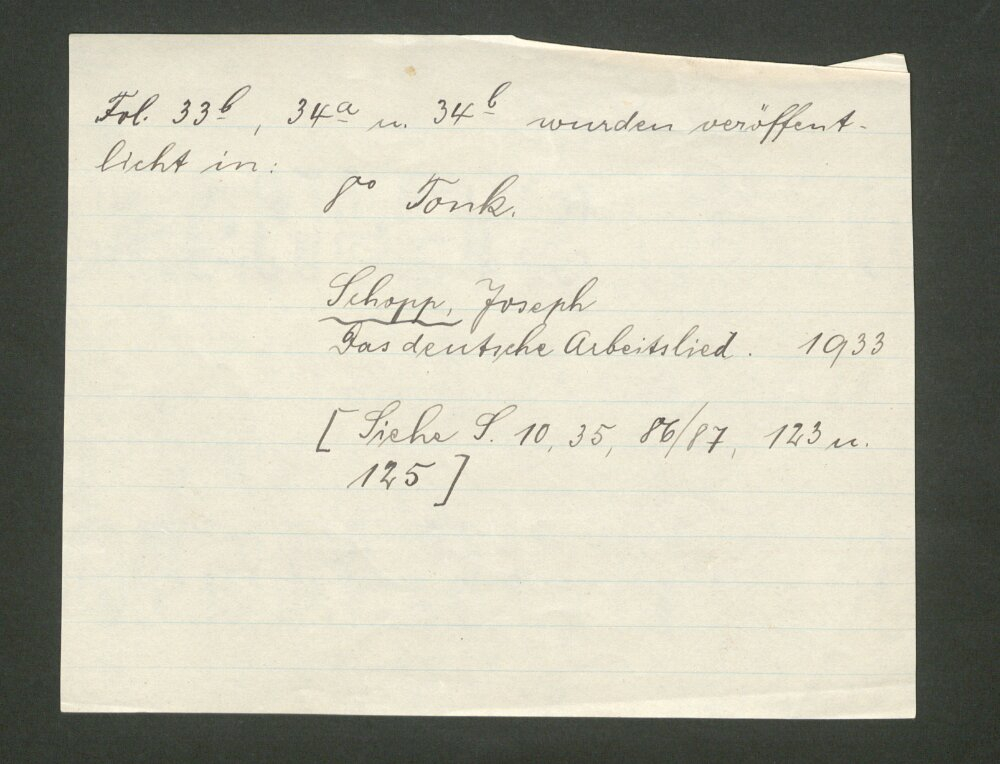 Fol. 33b, 34a u. 34b wurden veröffent-
licht in:
8° Tonk.
Schopp, Joseph
Das deutsche Arbeitslied. 1933
[Siehe S. 10, 35, 86/87, 123 u.
125]